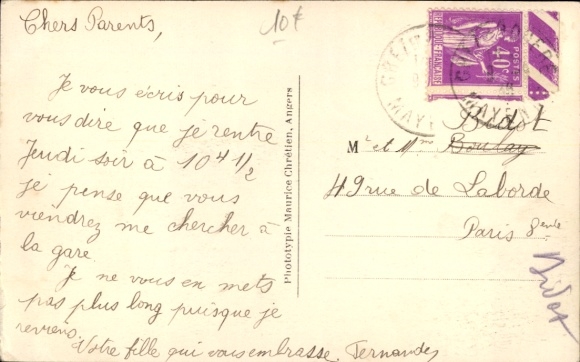 Chers Parents,
10 €
Je vous écris pour
vous dire que je rentre
Jeudi soir à 10 h 1/2
je pense que vous
viendrez me chercher à
la gare
Je ne vous en mets
pas plus long puisque je
reviens.
Votre fille qui vous embrasse. Fernande
Phototypie Maurice Chrétien, Angers
REPUBLIQUE FRANÇAISE
POSTES
40c
MAYENNE
Bidet
Mr et Mme Boulay
49 rue de Laborde
Paris 8eme
Bidet